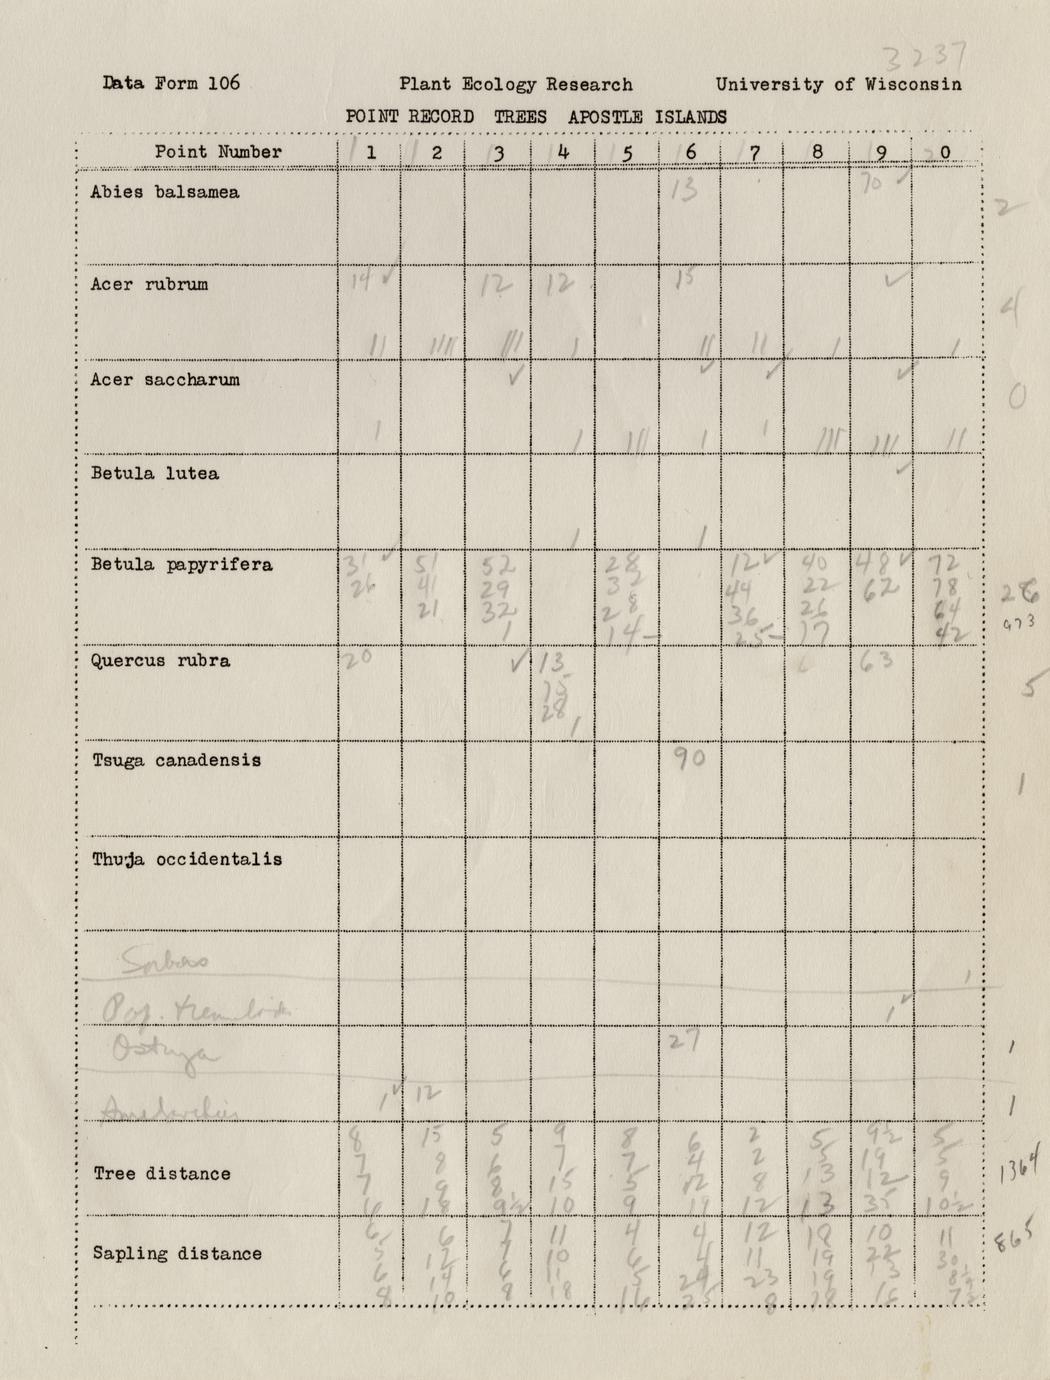 3237
Data Form 106 Plant Ecology Research University of Wisconsin
POINT RECORD TREES APOSTLE ISLANDS
Point Number 1 2 3 4 5 6 7 8 9 0
Abies balsamea 13 70 ✓ 2
Acer rubrum 14 ✓ 12 12 15 ✓ 4
|| |||| ||| | || || | |
Acer saccharum ✓ ✓ ✓ ✓ 0
| | ||| | | ||| ||| ||
Betula lutea ✓
| |
Betula papyrifera 31 ✓ 51 52 28 12 ✓ 40 48 ✓ 72
26 41 29 32 44 22 62 78 28
21 32 28 36 26 64 973
1 14- 25- 17 42
Quercus rubra 20 ✓ 13 63 5
15
28
|
Tsuga canadensis 90 1
Thuja occidentalis
Sorbus |
Pop. tremuloides 1 ✓
Ostrya 27 1
Amelanchier 1 ✓ 12 1
8 15 5 9 8 6 2 5 9½ 5
7 8 6 7 7 4 2 5 19 5
Tree distance 7 9 8 15 5 12 8 13 12 9 1364
6 18 9½ 10 9 19 12 13 35 10½
6 6 7 11 4 4 12 18 10 11
Sapling distance 5 12 7 10 6 4 11 19 22 30 865
6 14 6 11 5 24 23 19 13 8½
8 10 8 18 16 25 8 28 16 7½